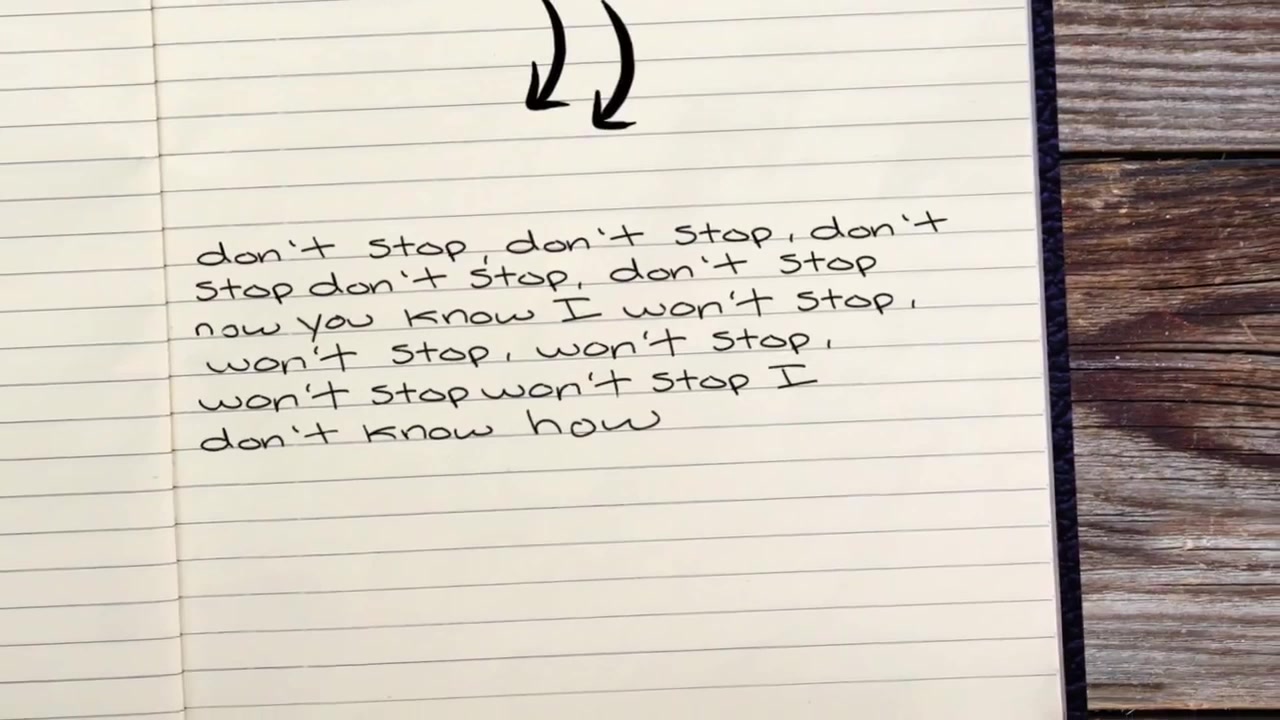 don't stop, don't stop, don't
stop don't stop, don't stop
now you know I won't stop,
won't stop, won't stop,
won't stop won't stop I
don't know how